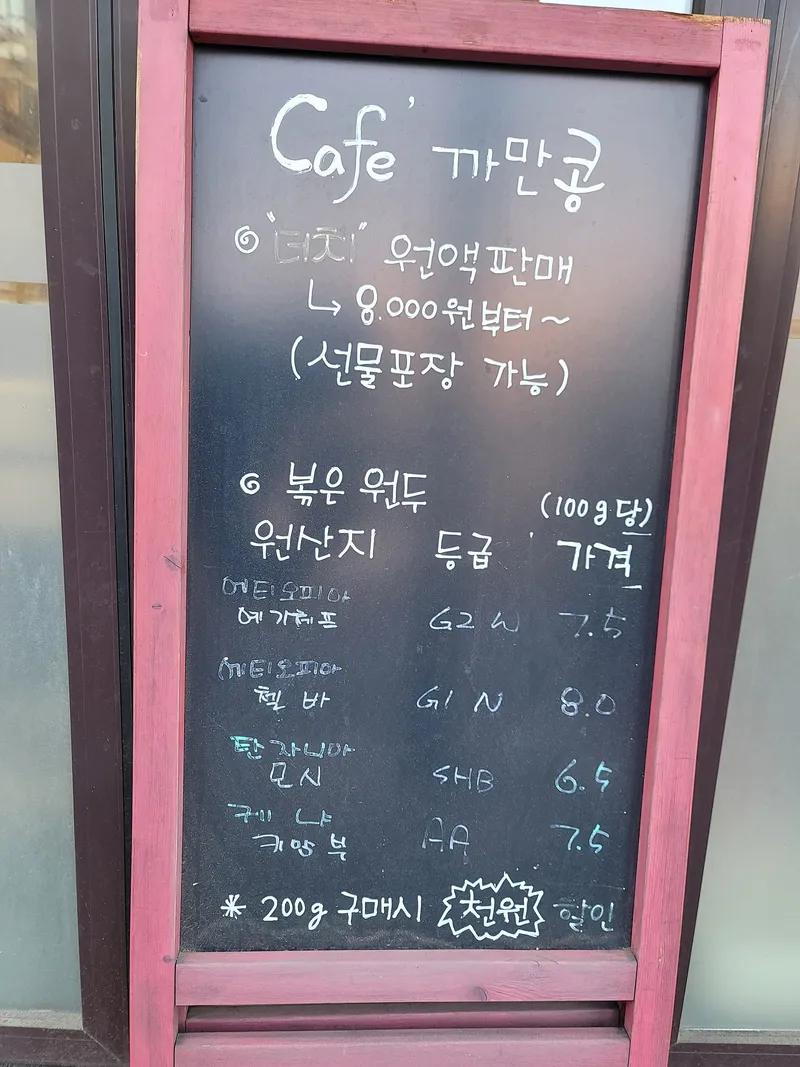 Cafe' 까만콩
"더치" 원액 판매
↳ 8.000원부터~
(선물포장 가능)
볶은 원두
(100g당)
원산지 등급 가격
에티오피아
예가체프 G2 W 7.5
에티오피아
첼바 G1 N 8.0
탄자니아
모시 SHB 6.5
케냐
키암부 AA 7.5
* 200g 구매시 천원 할인